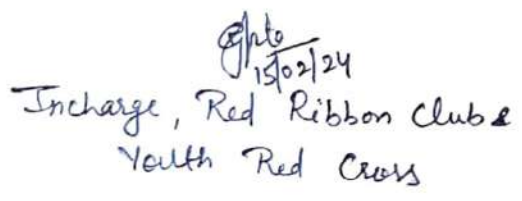 15/02/24
Incharge, Red Ribbon Club &
Youth Red Cross